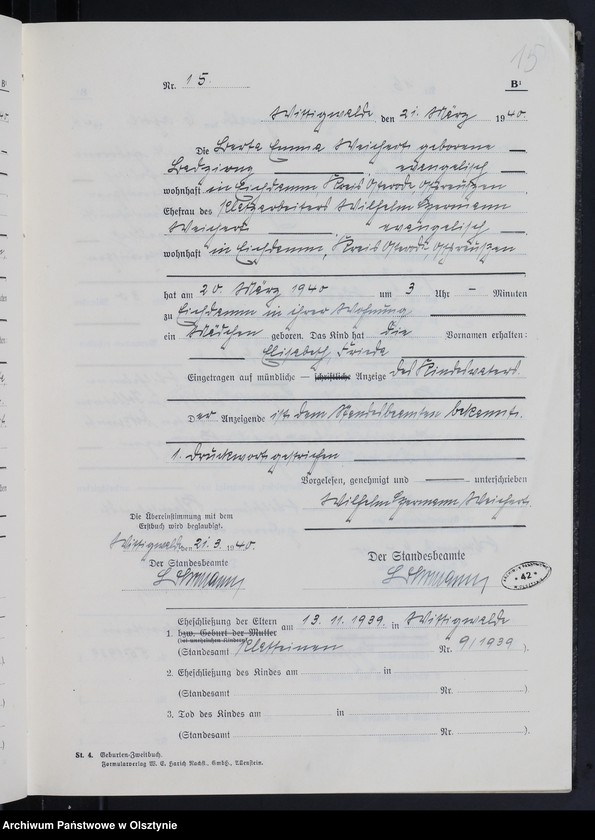 15
Nr. 15.
B¹
Wittigwalde, den 21. März 1940.
Die Berta Emma Weichert geborene
evangelisch
wohnhaft in Eichdamm, Kreis Osterode, Ostpreußen
Ehefrau des Wilhelm Hermann
Weichert evangelisch
wohnhaft in Eichdamm, Kreis Osterode, Ostpreußen
hat am 20. März 1940 um 3 Uhr — Minuten
zu Eichdamm in ihrer Wohnung
ein Mädchen geboren. Das Kind hat die Vornamen erhalten:
Elisabeth Frieda
Eingetragen auf mündliche — schriftliche Anzeige des Kindesvaters.
Der Anzeigende ist dem Standesbeamten bekannt.
1. Druckwort gestrichen
Vorgelesen, genehmigt und unterschrieben
Wilhelm Hermann Weichert
Die Übereinstimmung mit dem
Erstbuch wird beglaubigt.
Wittigwalde, den 21.3. 1940.
Der Standesbeamte
Der Standesbeamte
42
Eheschließung der Eltern am 13.11.1939 in Wittigwalde
1. bzw. Geburt der Mutter
(bei unehelichen Kindern)
(Standesamt Nr. 9/1939 ).
2. Eheschließung des Kindes am in
(Standesamt Nr. ).
3. Tod des Kindes am in
(Standesamt Nr. ).
St. 4. Geburten-Zweitbuch.
Formularverlag W. E. Harich Nachf., GmbH., Allenstein.
Archiwum Państwowe w Olsztynie